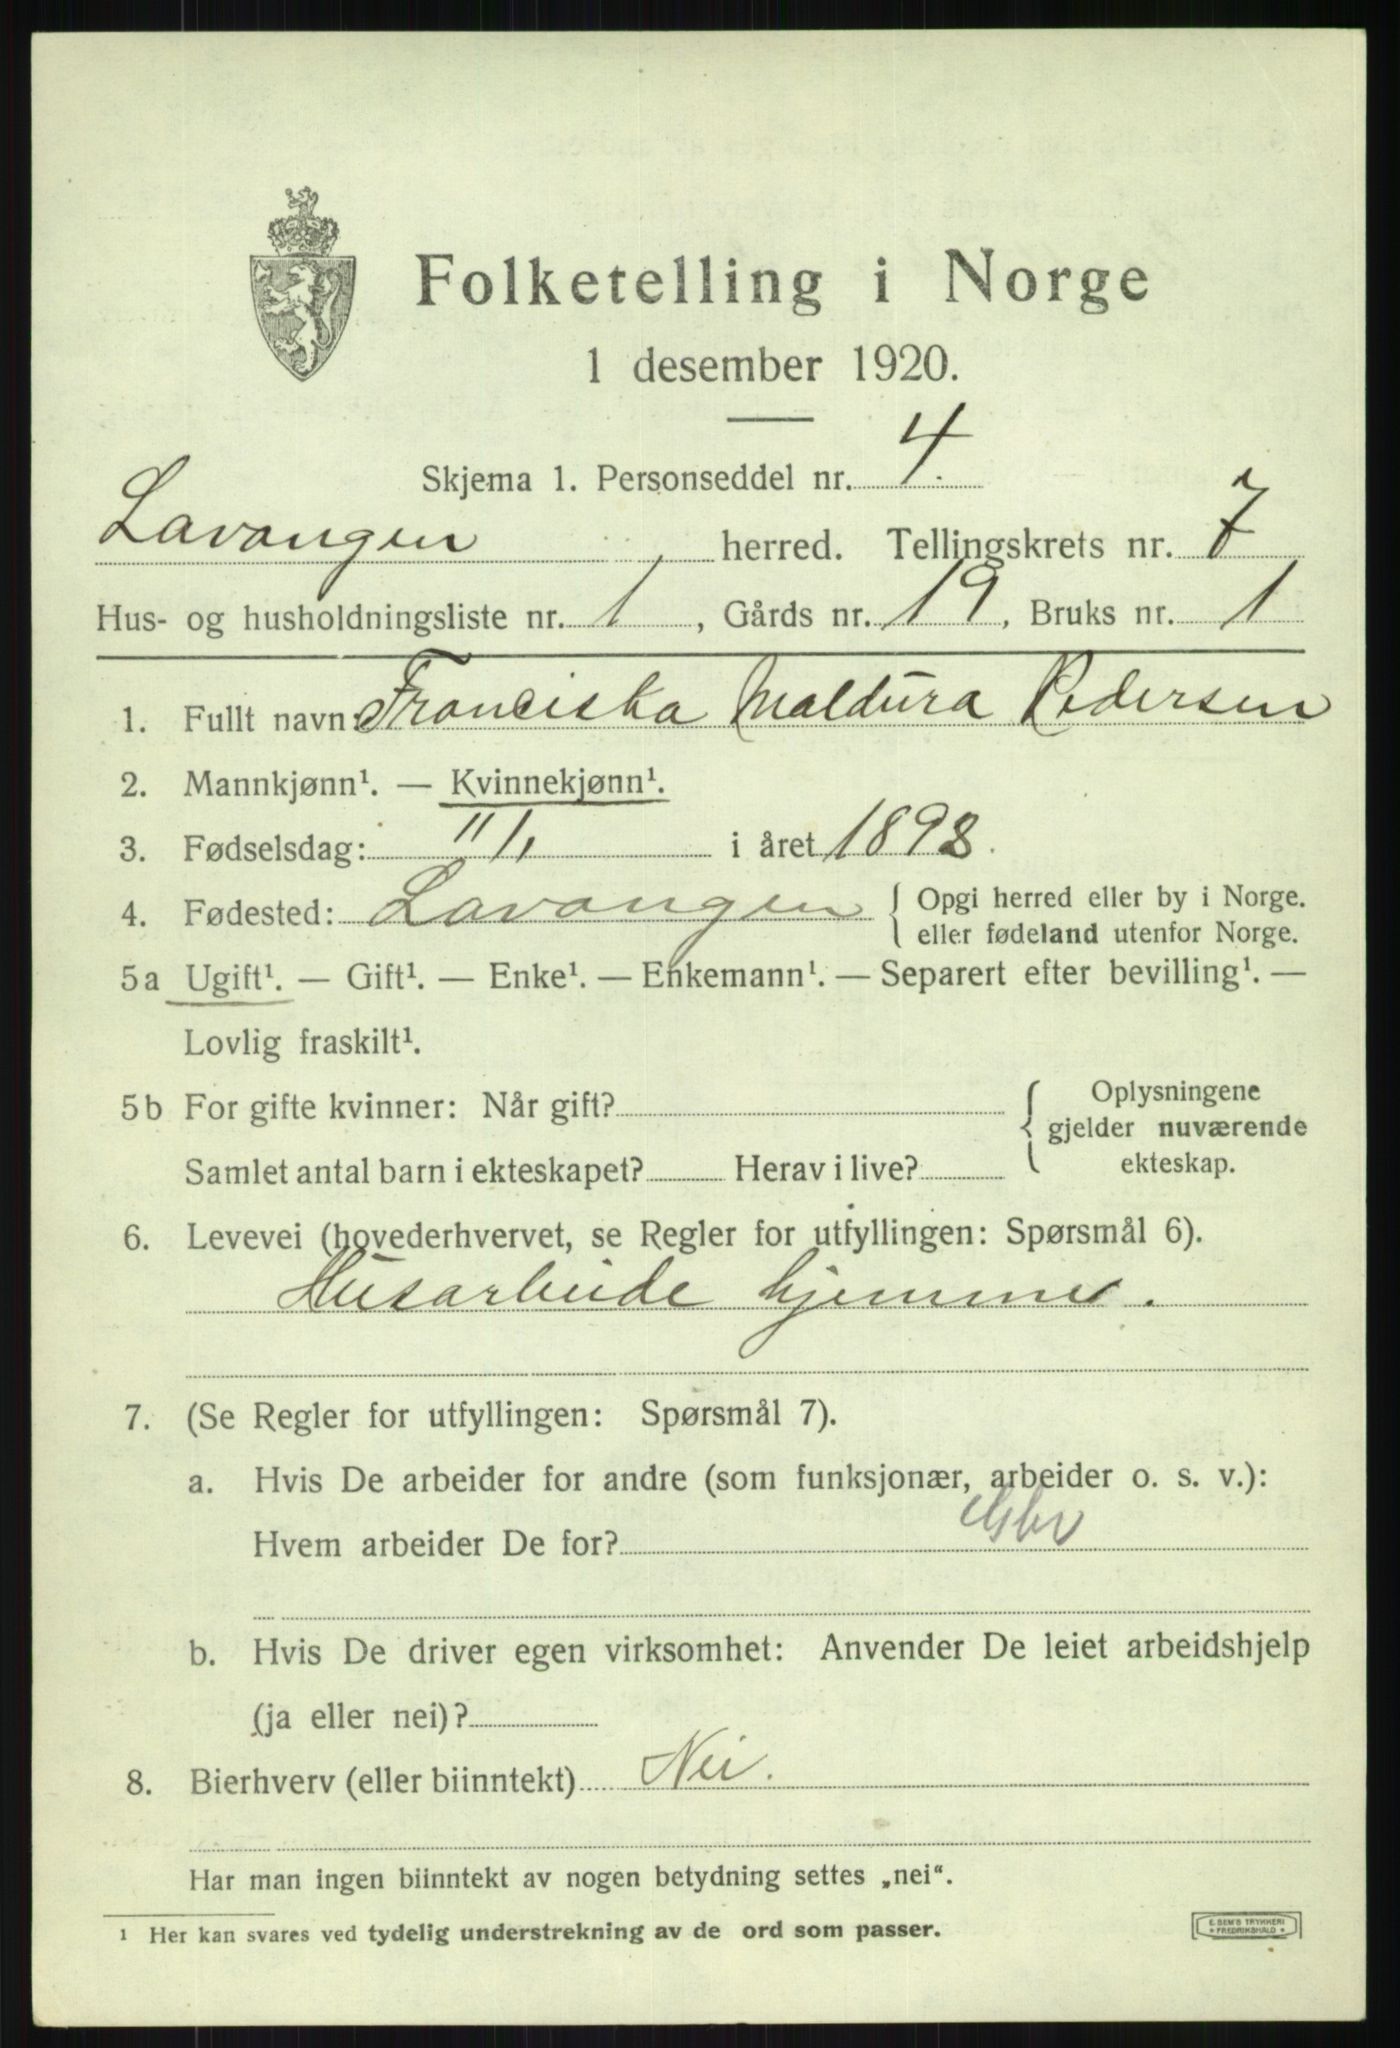 Folketelling i Norge
1 desember 1920.
Skjema 1. Personseddel nr. 4.
Lavangen herred. Tellingskrets nr. 7
Hus- og husholdningsliste nr. 1, Gårds nr. 19, Bruks nr. 1
1. Fullt navn: Franciska Maldura Pedersen
2. Mannkjønn¹. — Kvinnekjønn¹.
3. Fødselsdag: 11/1 i året 1898.
4. Fødested: Lavangen { Opgi herred eller by i Norge.
eller fødeland utenfor Norge.
5a Ugift¹. — Gift¹. — Enke¹. — Enkemann¹. — Separert efter bevilling¹. —
Lovlig fraskilt¹.
5b For gifte kvinner: Når gift? { Oplysningene
gjelder nuværende
Samlet antal barn i ekteskapet? Herav i live? ekteskap.
6. Levevei (hovederhvervet, se Regler for utfyllingen: Spørsmål 6).
Husarbeide hjemme.
7. (Se Regler for utfyllingen: Spørsmål 7).
a. Hvis De arbeider for andre (som funksjonær, arbeider o. s. v.):
Hvem arbeider De for?
b. Hvis De driver egen virksomhet: Anvender De leiet arbeidshjelp
(ja eller nei)?
8. Bierhverv (eller biinntekt) Nei.
Har man ingen biinntekt av nogen betydning settes „nei“.
¹ Her kan svares ved tydelig understrekning av de ord som passer.
E. SEM'S TRYKKERI
* FREDRIKSHALD *